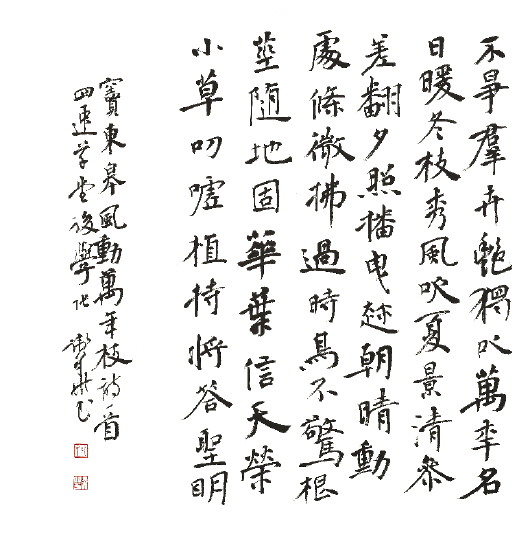 不爭羣卉艷獨以萬年名
日暖冬枝秀風吹夏景清參
差翻夕照搖曳趂朝晴動
處條微拂過時鳥不驚根
莖隨地固華葉信天榮
小草叨噓植持將答聖明
竇東皋風動萬年枝詩一首
草堂後學